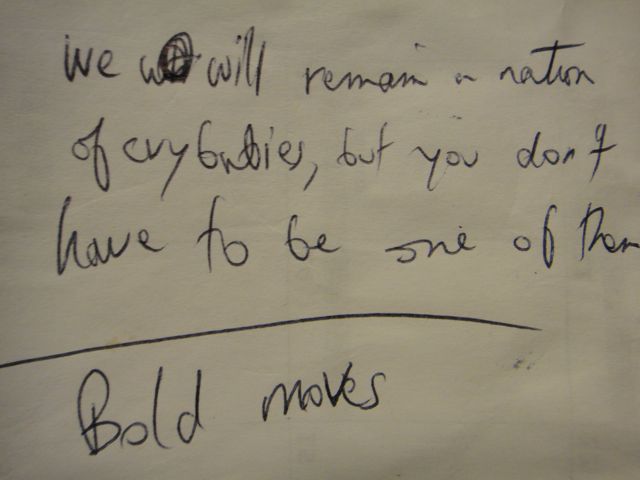 we will remain a nation
of crybabies, but you don't
have to be one of them
Bold moves